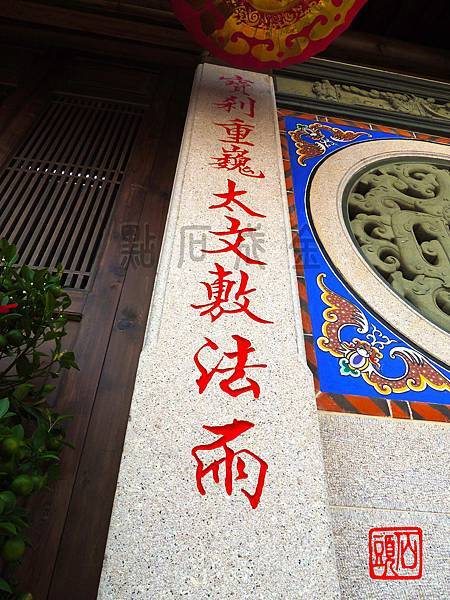 寶刹重巍太文敷法雨
點石成金
石頭